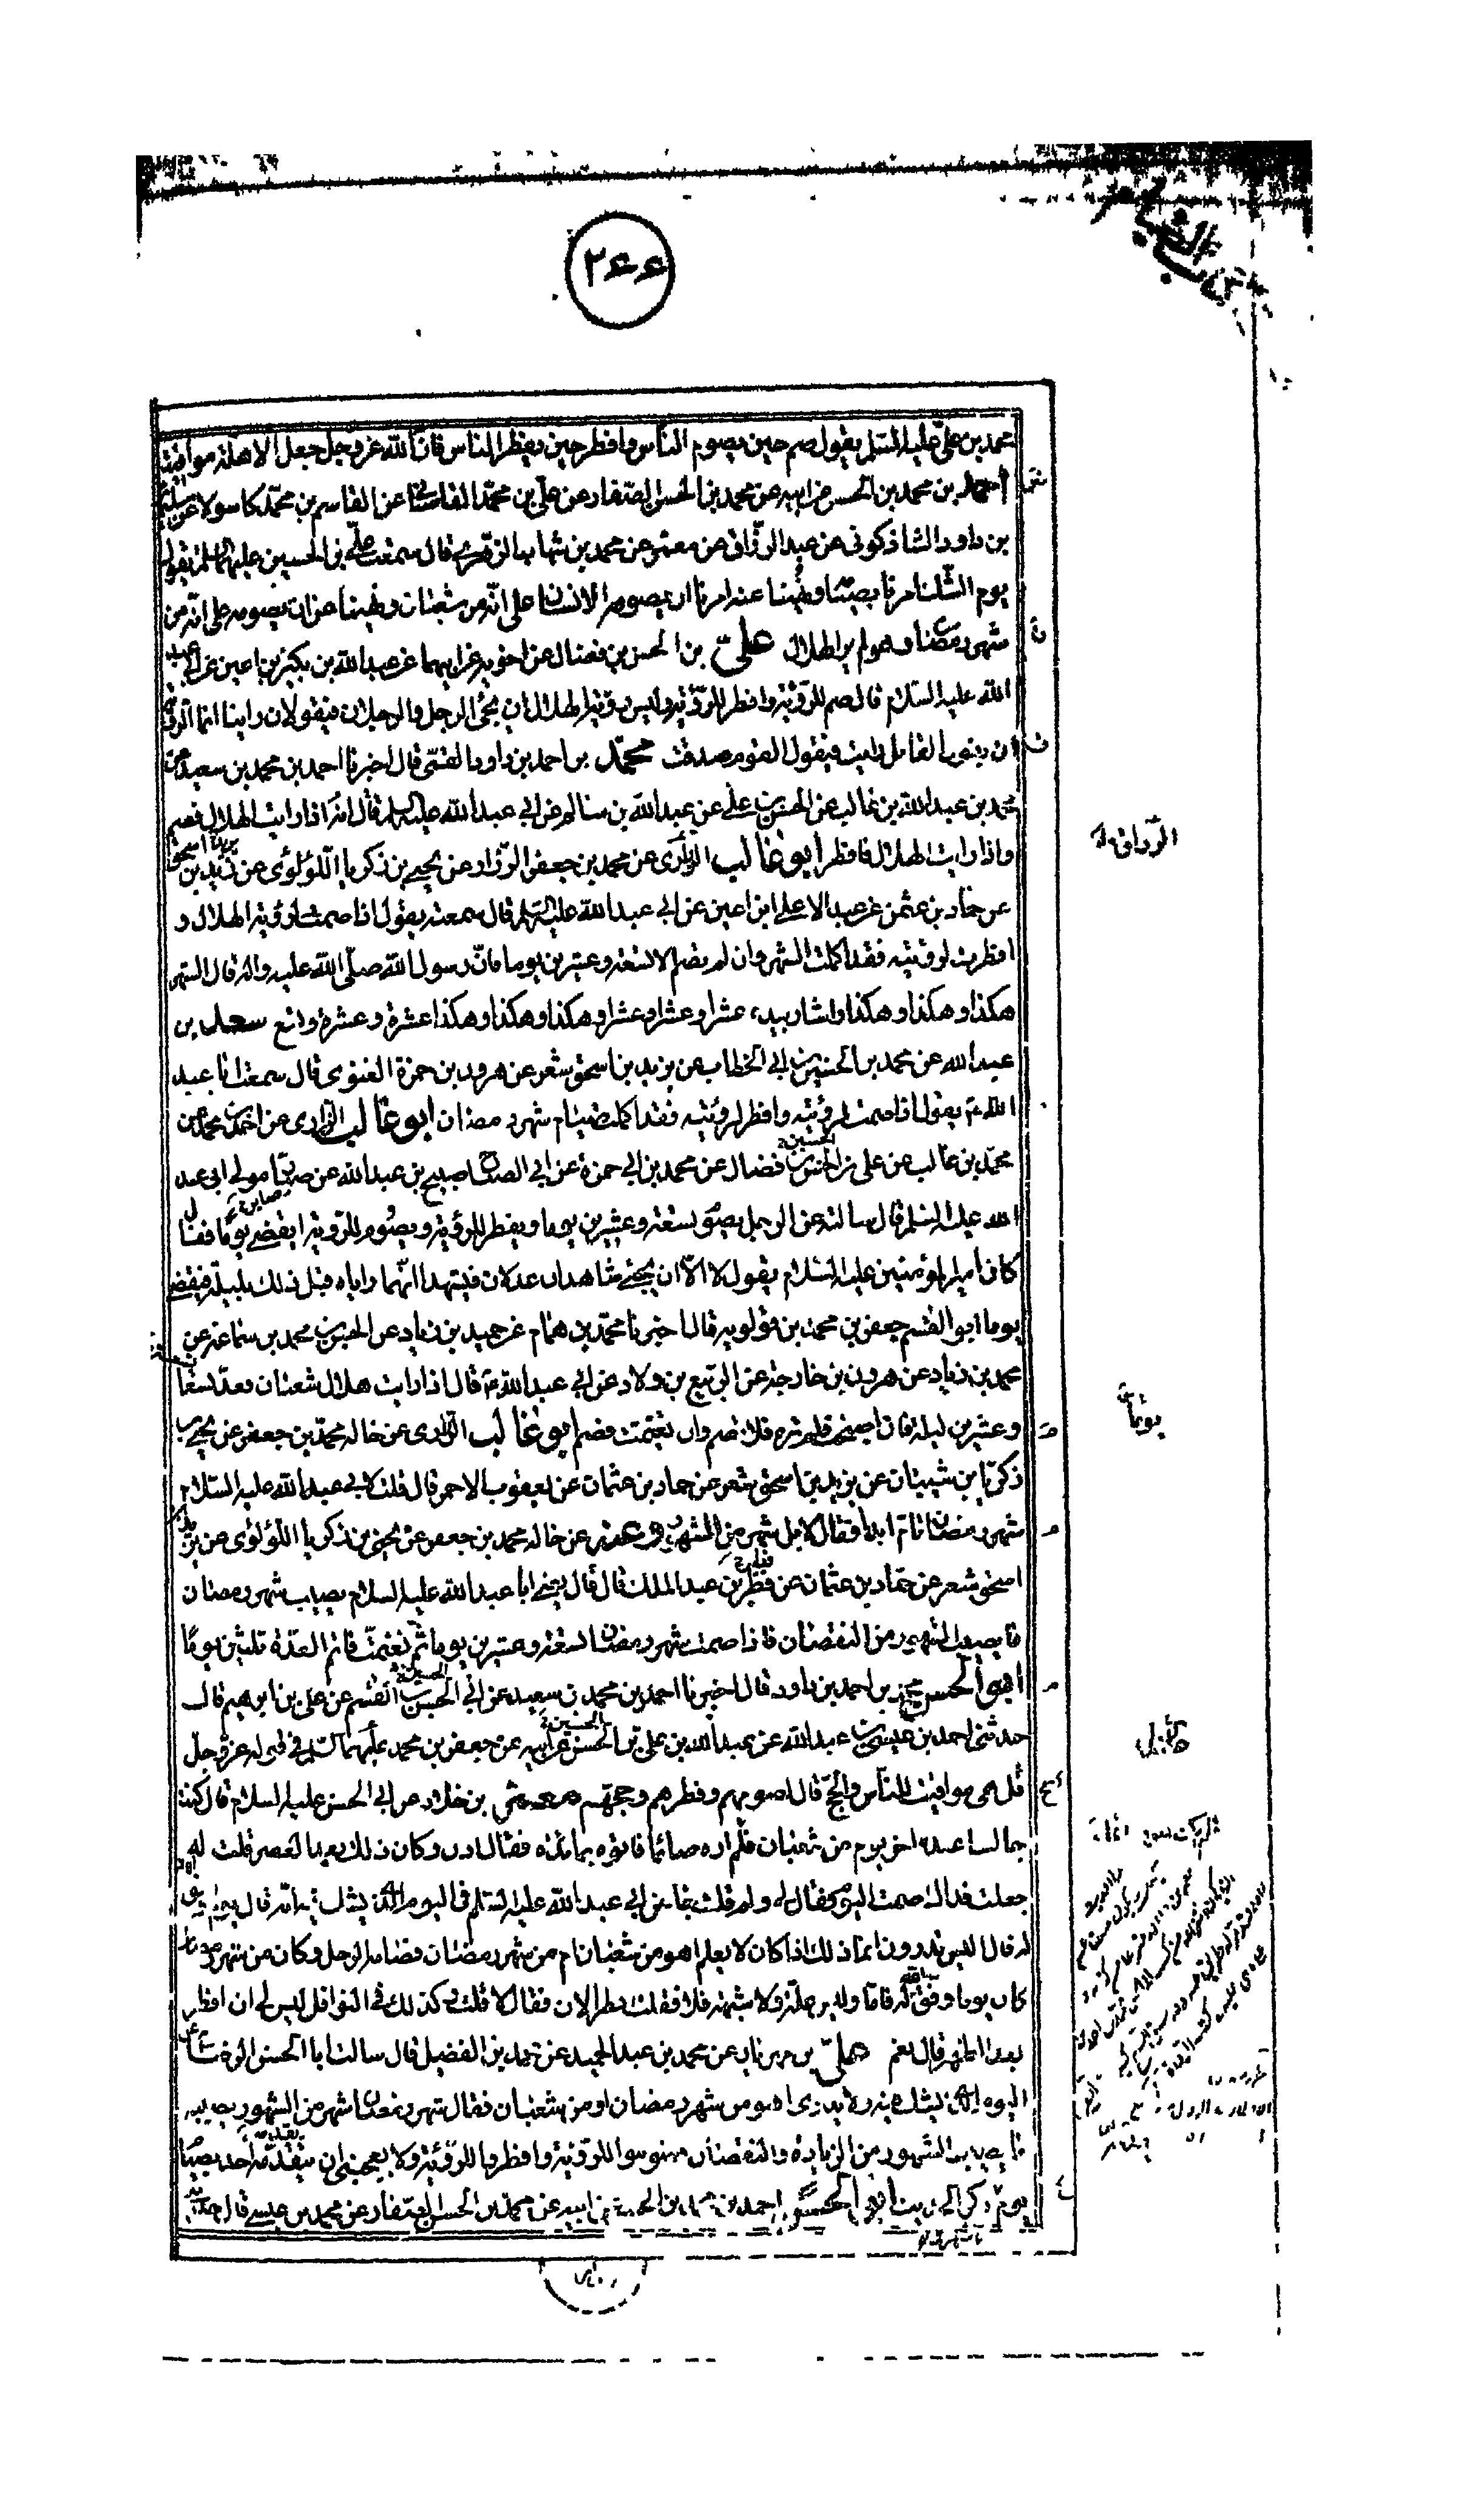 ٢٤٤
محمد بن علی علیه السلم یقول صم حین یصوم الناس وافطر حین یفطر الناس فان الله عز وجل جعل الاهلة مواقیت
احمد بن محمد بن الحسن عن ابیه عن محمد بن الحسن الصفار عن علی بن محمد القاسانی عن القاسم بن محمد کاسولا عن سلیمن
بن داود الشاذکونی عن عبد الرزاق عن معمر عن محمد بن شهاب الزهری قال سمعت علی بن الحسین علیهما السلم یقول
یوم الشک امرنا بصیامه ونهینا عنه امرنا ان یصومه الانسان علی انه من شعبان ونهینا عن ان یصومه علی انه من
شهر رمضان وهو لم یر الهلال علی بن الحسن بن فضال عن اخویه عن ابیهما عن عبد الله بن بکیر بن اعین عن ابی عبد
الله علیه السلام قال صم للرؤیة وافطر للرؤیة ولیس رؤیة الهلال ان یجئ الرجل والرجلان فیقولان راینا انما الرؤیة
ان یقول القائل رایت فیقول القوم صدقت محمد بن احمد بن داود القمی قال اخبرنا احمد بن محمد بن سعید عن
محمد بن عبد الله بن غالب عن الحسن بن علی عن عبد الله بن سنان عن ابی عبد الله علیه السلم قال انه اذا رایت الهلال فصم
واذا رایت الهلال فافطر ابو غالب الزراری عن محمد بن جعفر الرزاز عن یحیی بن زکریا اللؤلؤی عن یزید بن اسحق
عن حماد بن عثمن عن عبد الاعلی ابن اعین عن ابی عبد الله علیه السلم قال سمعته یقول اذا صمت لرؤیة الهلال و
افطرت لرؤیته فقد اکملت الشهر وان لم یصم الا تسعة وعشرین یوما فان رسول الله صلی الله علیه واله قال الشهر
هکذا وهکذا وهکذا واشار بیده عشرا وعشرا وعشرا وهکذا وهکذا وهکذا عشرة وعشرة وتسع سعد بن
عبد الله عن محمد بن الحسین بن ابی الخطاب عن یزید بن اسحق شعر عن هرون بن حمزة الغنوی قال سمعت ابا عبد
الله ع یقول اذا صمت لرؤیته وافطرت لرؤیته فقد اکملت صیام شهر رمضان ابو غالب الزراری عن احمد بن محمد عن
محمد بن غالب عن علی بن الحسن بن فضال عن محمد بن ابی حمزة عن ابی الصباح صبیح بن عبد الله عن صابر مولی ابی عبد
الله علیه السلم قال سالته عن الرجل یصوم تسعة وعشرین یوما ویفطر للرؤیة ویصوم للرؤیة ایقضی یوما فقال
کان امیر المؤمنین علیه السلام یقول لا الا ان یجئ شاهدان عدلان فیشهدا انهما رایاه قبل ذلک بلیلة فیقضی
یوما ابو القسم جعفر بن محمد بن قولویه قال اخبرنا محمد بن همام عن حمید بن زیاد عن الحسن بن محمد بن سماعة عن
محمد بن زیاد عن هرون بن خارجة عن الربیع بن ولاد عن ابی عبد الله ع قال اذا رایت هلال شعبان فعد تسعا
وعشرین لیلة فان اصحت فلم تره فلا تصم وان تغیمت فصم ابو غالب الزراری عن خاله محمد بن جعفر عن یحیی بن
زکریا بن شیبان عن یزید بن اسحق شعر عن حماد بن عثمان عن یعقوب الاحمر قال قلت لابی عبد الله علیه السلام
شهر رمضان تام ابدا فقال لا بل شهر من الشهور وعنه عن خاله محمد بن جعفر عن یحیی بن زکریا اللؤلؤی عن یزید بن
اسحق شعر عن حماد بن عثمان عن فطر بن عبد الملک قال قال یعنی ابا عبد الله علیه السلام یصیب شهر رمضان
ما یصیب الشهور من النقصان فاذا صمت شهر رمضان تسعة وعشرین یوما ثم تغیمت فاتم العدة ثلثین یوما
ابو الحسن محمد بن احمد بن داود قال اخبرنا احمد بن محمد بن سعید عن ابی الحسن بن القسم عن علی بن ابراهیم قال
حدثنی احمد بن عیسی بن عبد الله عن عبد الله بن علی بن الحسن عن ابیه عن جعفر بن محمد علیهما السلم فی قوله عز وجل
قل هی مواقیت للناس والحج قال لصومهم وفطرهم وحجهم معمر بن خلاد عن ابی الحسن علیه السلام قال کنت
جالسا عنده اخر یوم من شعبان فلم اره صائما فاتوه بمائدة فقال ادن وکان ذلک بعد العصر قلت له
جعلت فداک صمت الیوم فقال لی ولم قلت جاء عن ابی عبد الله علیه السلم فی الیوم الذی یشک فیه انه قال یوم وفق
له قال الیس تدرون انما ذلک اذا کان لا یعلم اهو من شعبان ام من شهر رمضان فصامه الرجل وکان من شهر رمضان
کان یوما وفق الله له فاما ولیس علة ولا شبهة فلا فقلت افطر الان فقال لا قلت وکذلک فی النوافل لیس لی ان افطر
بعد الظهر قال نعم علی بن مهزیار عن محمد بن عبد الحمید عن محمد بن الفضیل قال سالت ابا الحسن الرضا ع عن
الیوم الذی یشک فیه ولا یدری اهو من شهر رمضان او من شعبان فقال شهر رمضان شهر من الشهور یصیبه
ما یصیب الشهور من الزیادة والنقصان فصوموا للرؤیة وافطروا للرؤیة ولا یعجبنی ان یتقدمه احد بصیام
یوم وذکر الحدیث ابو الحسن احمد بن محمد بن الحسن عن ابیه عن محمد بن الحسن الصفار عن محمد بن عیسی قال حدثنی